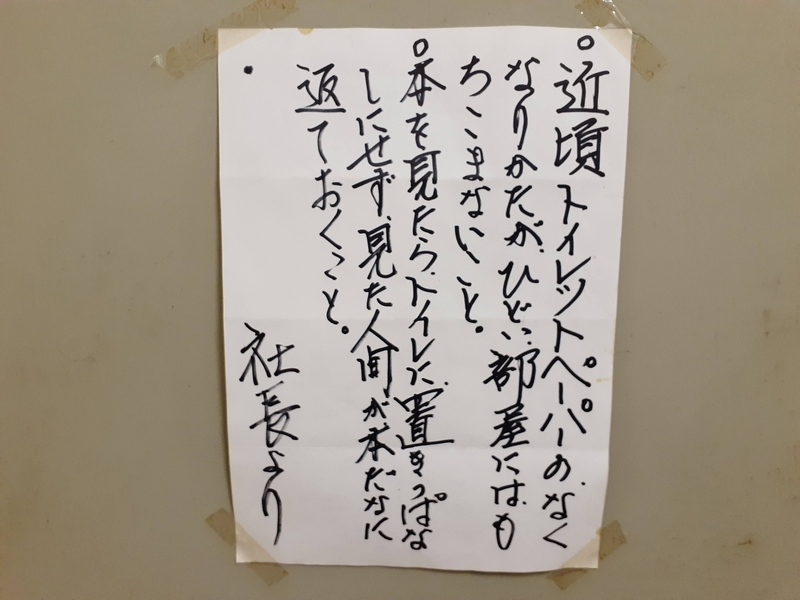 ○近頃トイレットペーパーのなく
なりかたが、ひどい、部屋にはも
ちこまないこと。
○本を見たら、トイレに置きっぱな
しにせず、見た人間が本だなに
返ておくこと。
社長より